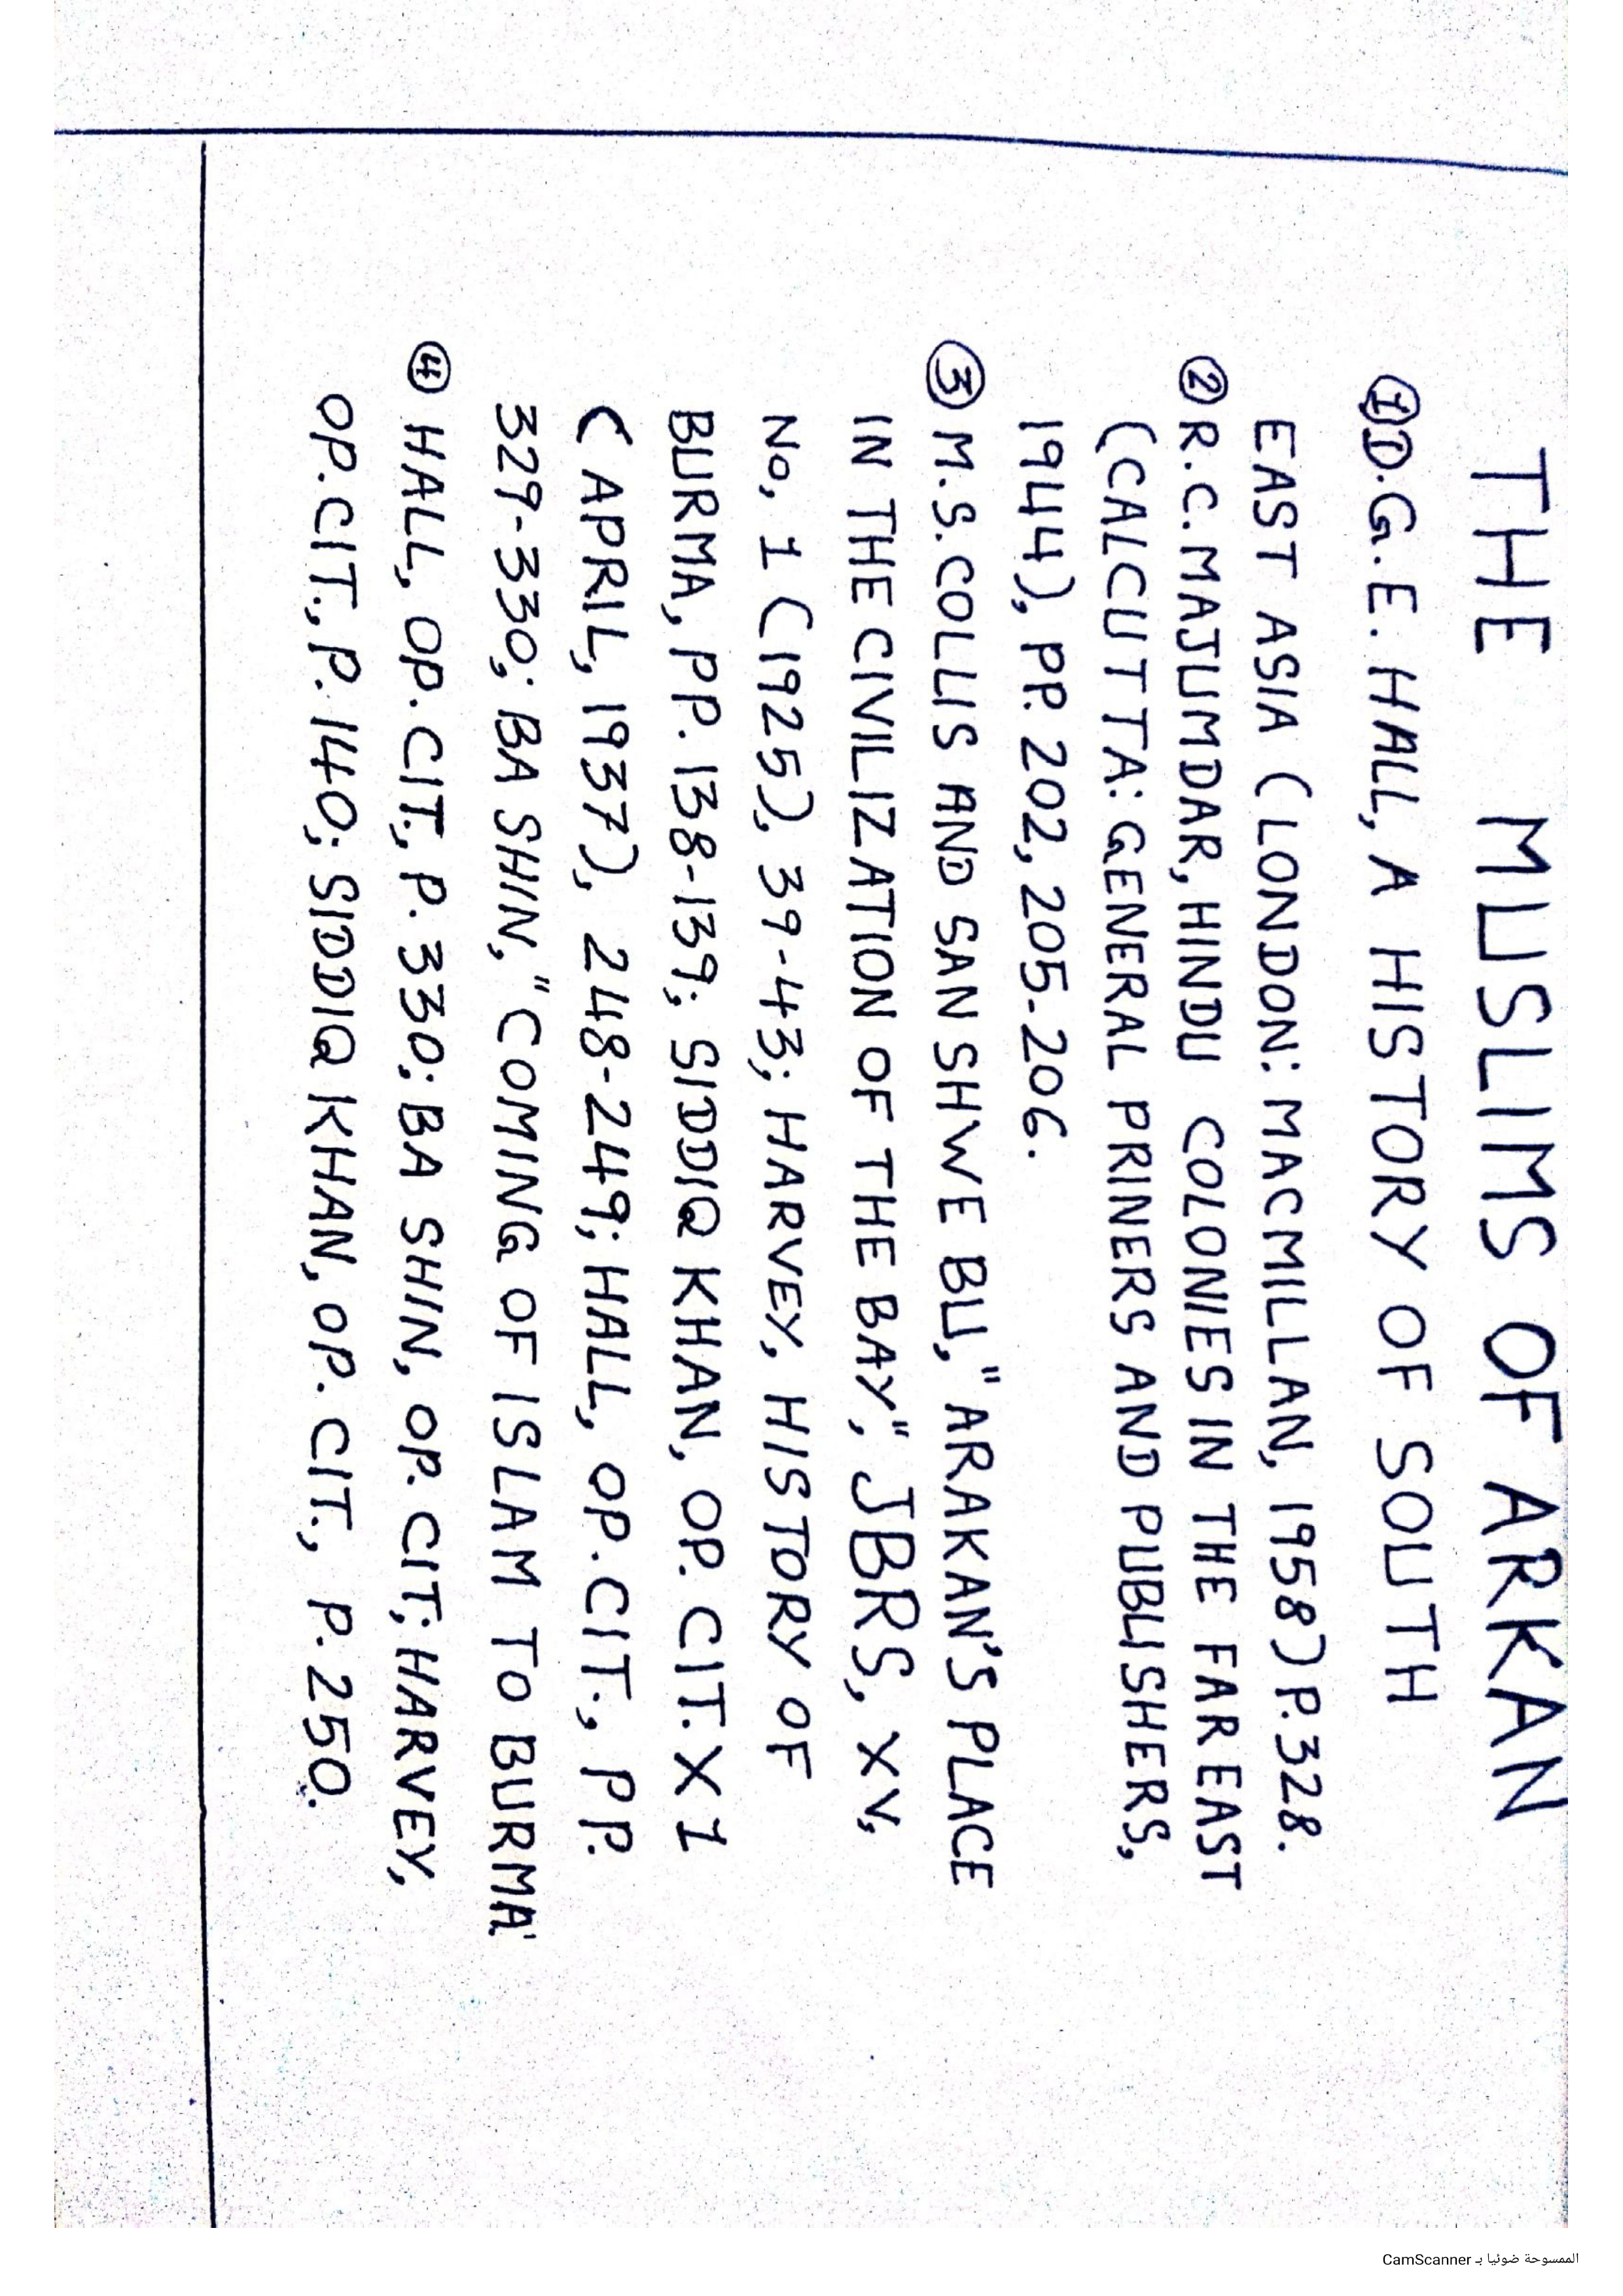 THE MUSLIMS OF ARKAN
① D.G.E. HALL, A HISTORY OF SOUTH
EAST ASIA (LONDON: MACMILLAN, 1958) P.328.
② R.C. MAJUMDAR, HINDU COLONIES IN THE FAR EAST
(CALCUTTA: GENERAL PRINERS AND PUBLISHERS,
1944), PP. 202, 205-206.
③ M.S. COLLIS AND SAN SHWE BU, "ARAKAN'S PLACE
IN THE CIVILIZATION OF THE BAY", JBRS, XV,
No, 1 (1925), 39-43; HARVEY, HISTORY OF
BURMA, PP. 138-139; SIDDIQ KHAN, OP. CIT. X 1
(APRIL, 1937), 248-249; HALL, OP. CIT., PP.
329-330; BA SHIN, "COMING OF ISLAM TO BURMA"
④ HALL, OP. CIT., P. 330; BA SHIN, OP. CIT; HARVEY,
OP. CIT., P. 140; SIDDIQ KHAN, OP. CIT., P. 250.
الممسوحة ضوئيا بـ CamScanner